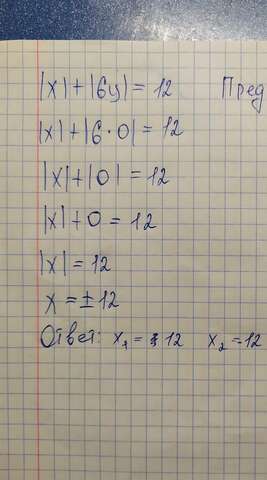 |x| + |6y| = 12 Пред
|x| + |6·0| = 12
|x| + |0| = 12
|x| + 0 = 12
|x| = 12
x = ±12
Ответ: x₁ = 12 x₂ = -12